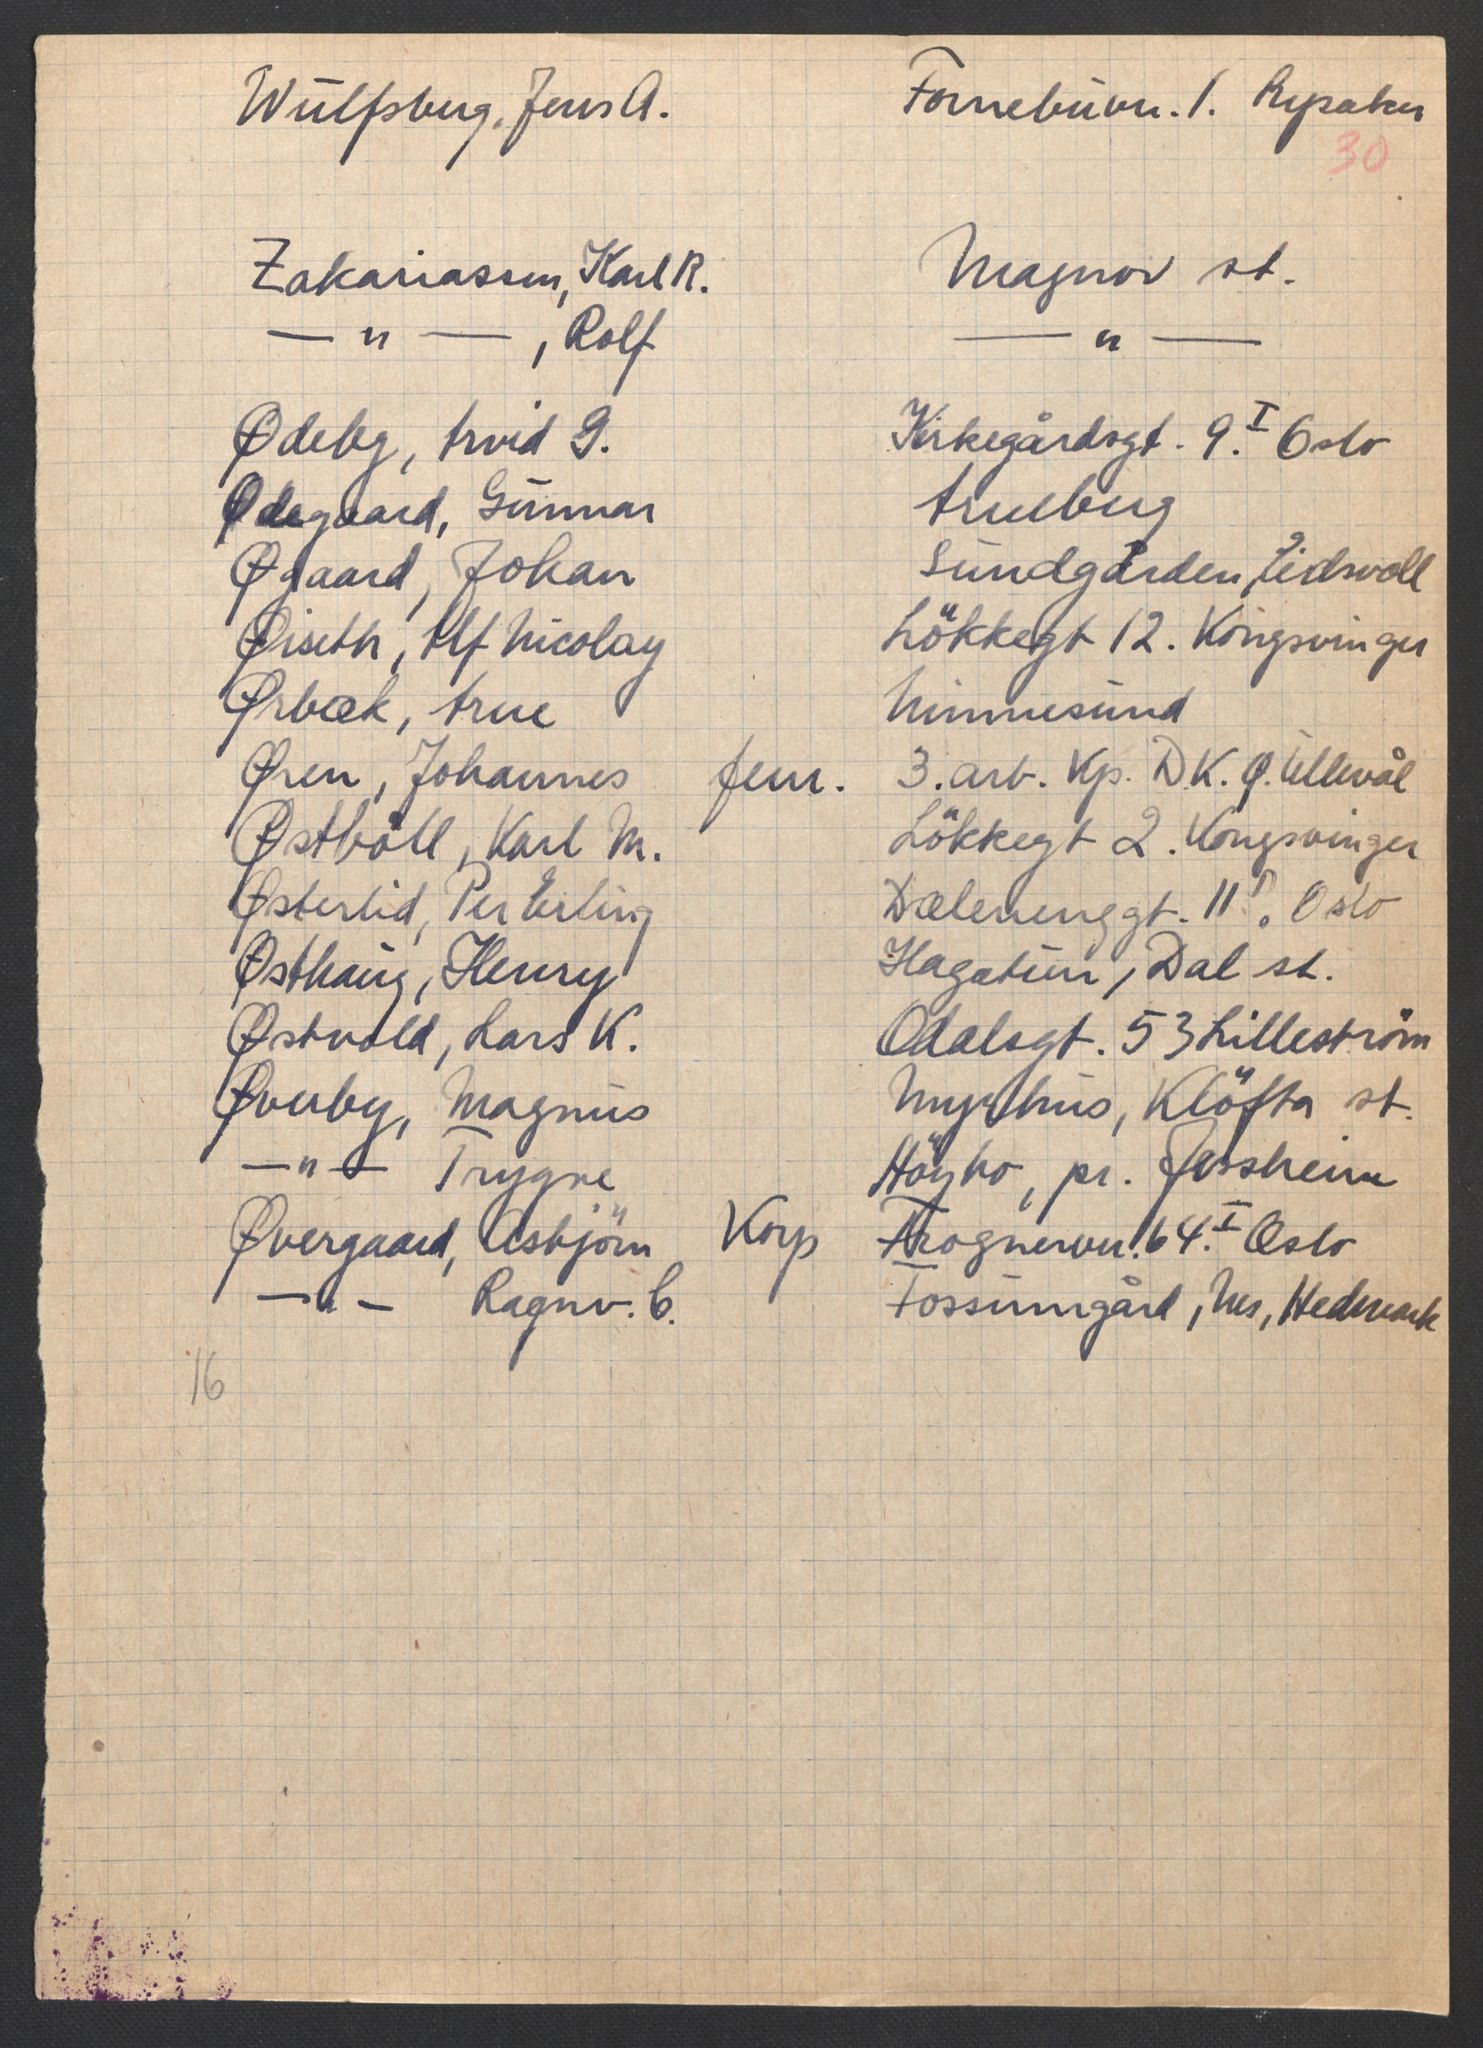 Wulfsberg, Jens A. Fornebuvn. 1. Lysaker
30
Zakariassen, Karl R. Magnor st.
— " — , Rolf — " —
Ødeby, Arvid G. Kirkegårdsgt. 9.I Oslo
Ødegaard, Gunnar Arneberg
Øgaard, Johan Sundgården, Eidsvoll
Øiseth, Alf Nicolay Lökkegt 12. Kongsvinger
Ørbæk, Arne Minnesund
Øren, Johannes fenr. 3. arb. Kp. D.K.Ø. Ullevål
Østböll, Karl M. Lökkegt 2. Kongsvinger
Østerlid, Per Erling Dælenenggt. 11 . Oslo
Østhaug, Henry Hagatun, Dal st.
Østvold, Lars K. Odalsgt. 53 Lilleström
Øverby, Magnus Myrhus, Klöfta st.
— " — Trygve Höyho, pr. Jessheim
Øvergaard, Asbjörn Korp Frognervn. 64.I Oslo
— " — Ragnv. C. Fossumgård, Nes, Hedmark
16